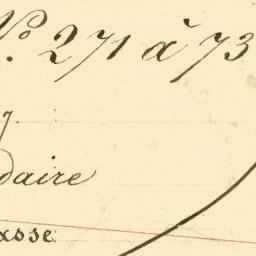 No. 271 à 73
y.
daire
xsse